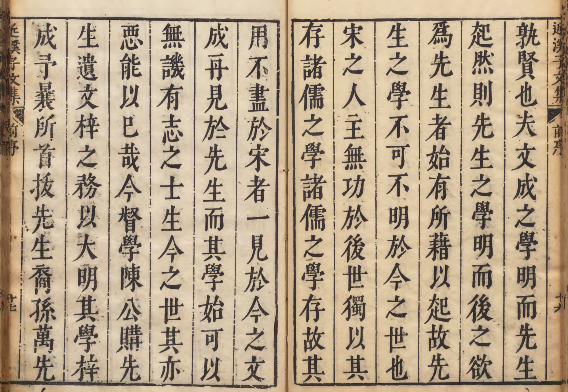 近溪子文集 前序
孰賢也夫文成之學明而先生
起然則先生之學明而後之欲
爲先生者始有所藉以起故先
生之學不可不明於今之世也
宋之人主無功於後世獨以其
存諸儒之學諸儒之學存故其
用不盡於宋者一見於今之文
成再見於先生而其學始可以
無譏有志之士生今之世其亦
惡能以已哉今督學陳公購先
生遺文梓之務以大明其學梓
成予曩所首拔先生裔孫萬先
近溪子文集 前序 廿七